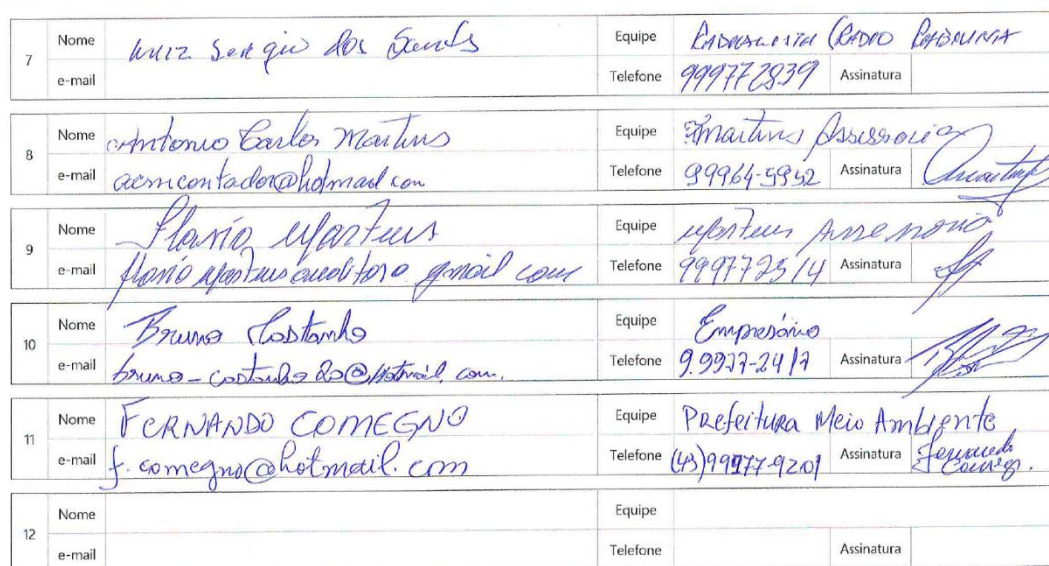 7 Nome Luiz Sergio dos Santos Equipe Radialista (Radio
e-mail Telefone 999772939 Assinatura
8 Nome Antonio Carlos Martins Equipe Martins Assessoria
e-mail acmcontador@hotmail.com Telefone 99964-5952 Assinatura
9 Nome Flavio Martins Equipe Martins Assessoria
e-mail Telefone 999772514 Assinatura
10 Nome Bruno Castanho Equipe Empresário
e-mail bruno-castanho20@hotmail.com. Telefone 9.9977-2417 Assinatura
11 Nome FERNANDO COMEGNO Equipe Prefeitura Meio Ambiente
e-mail f.comegno@hotmail.com Telefone (43)99977-9201 Assinatura Fernando Comegno.
12 Nome Equipe
e-mail Telefone Assinatura